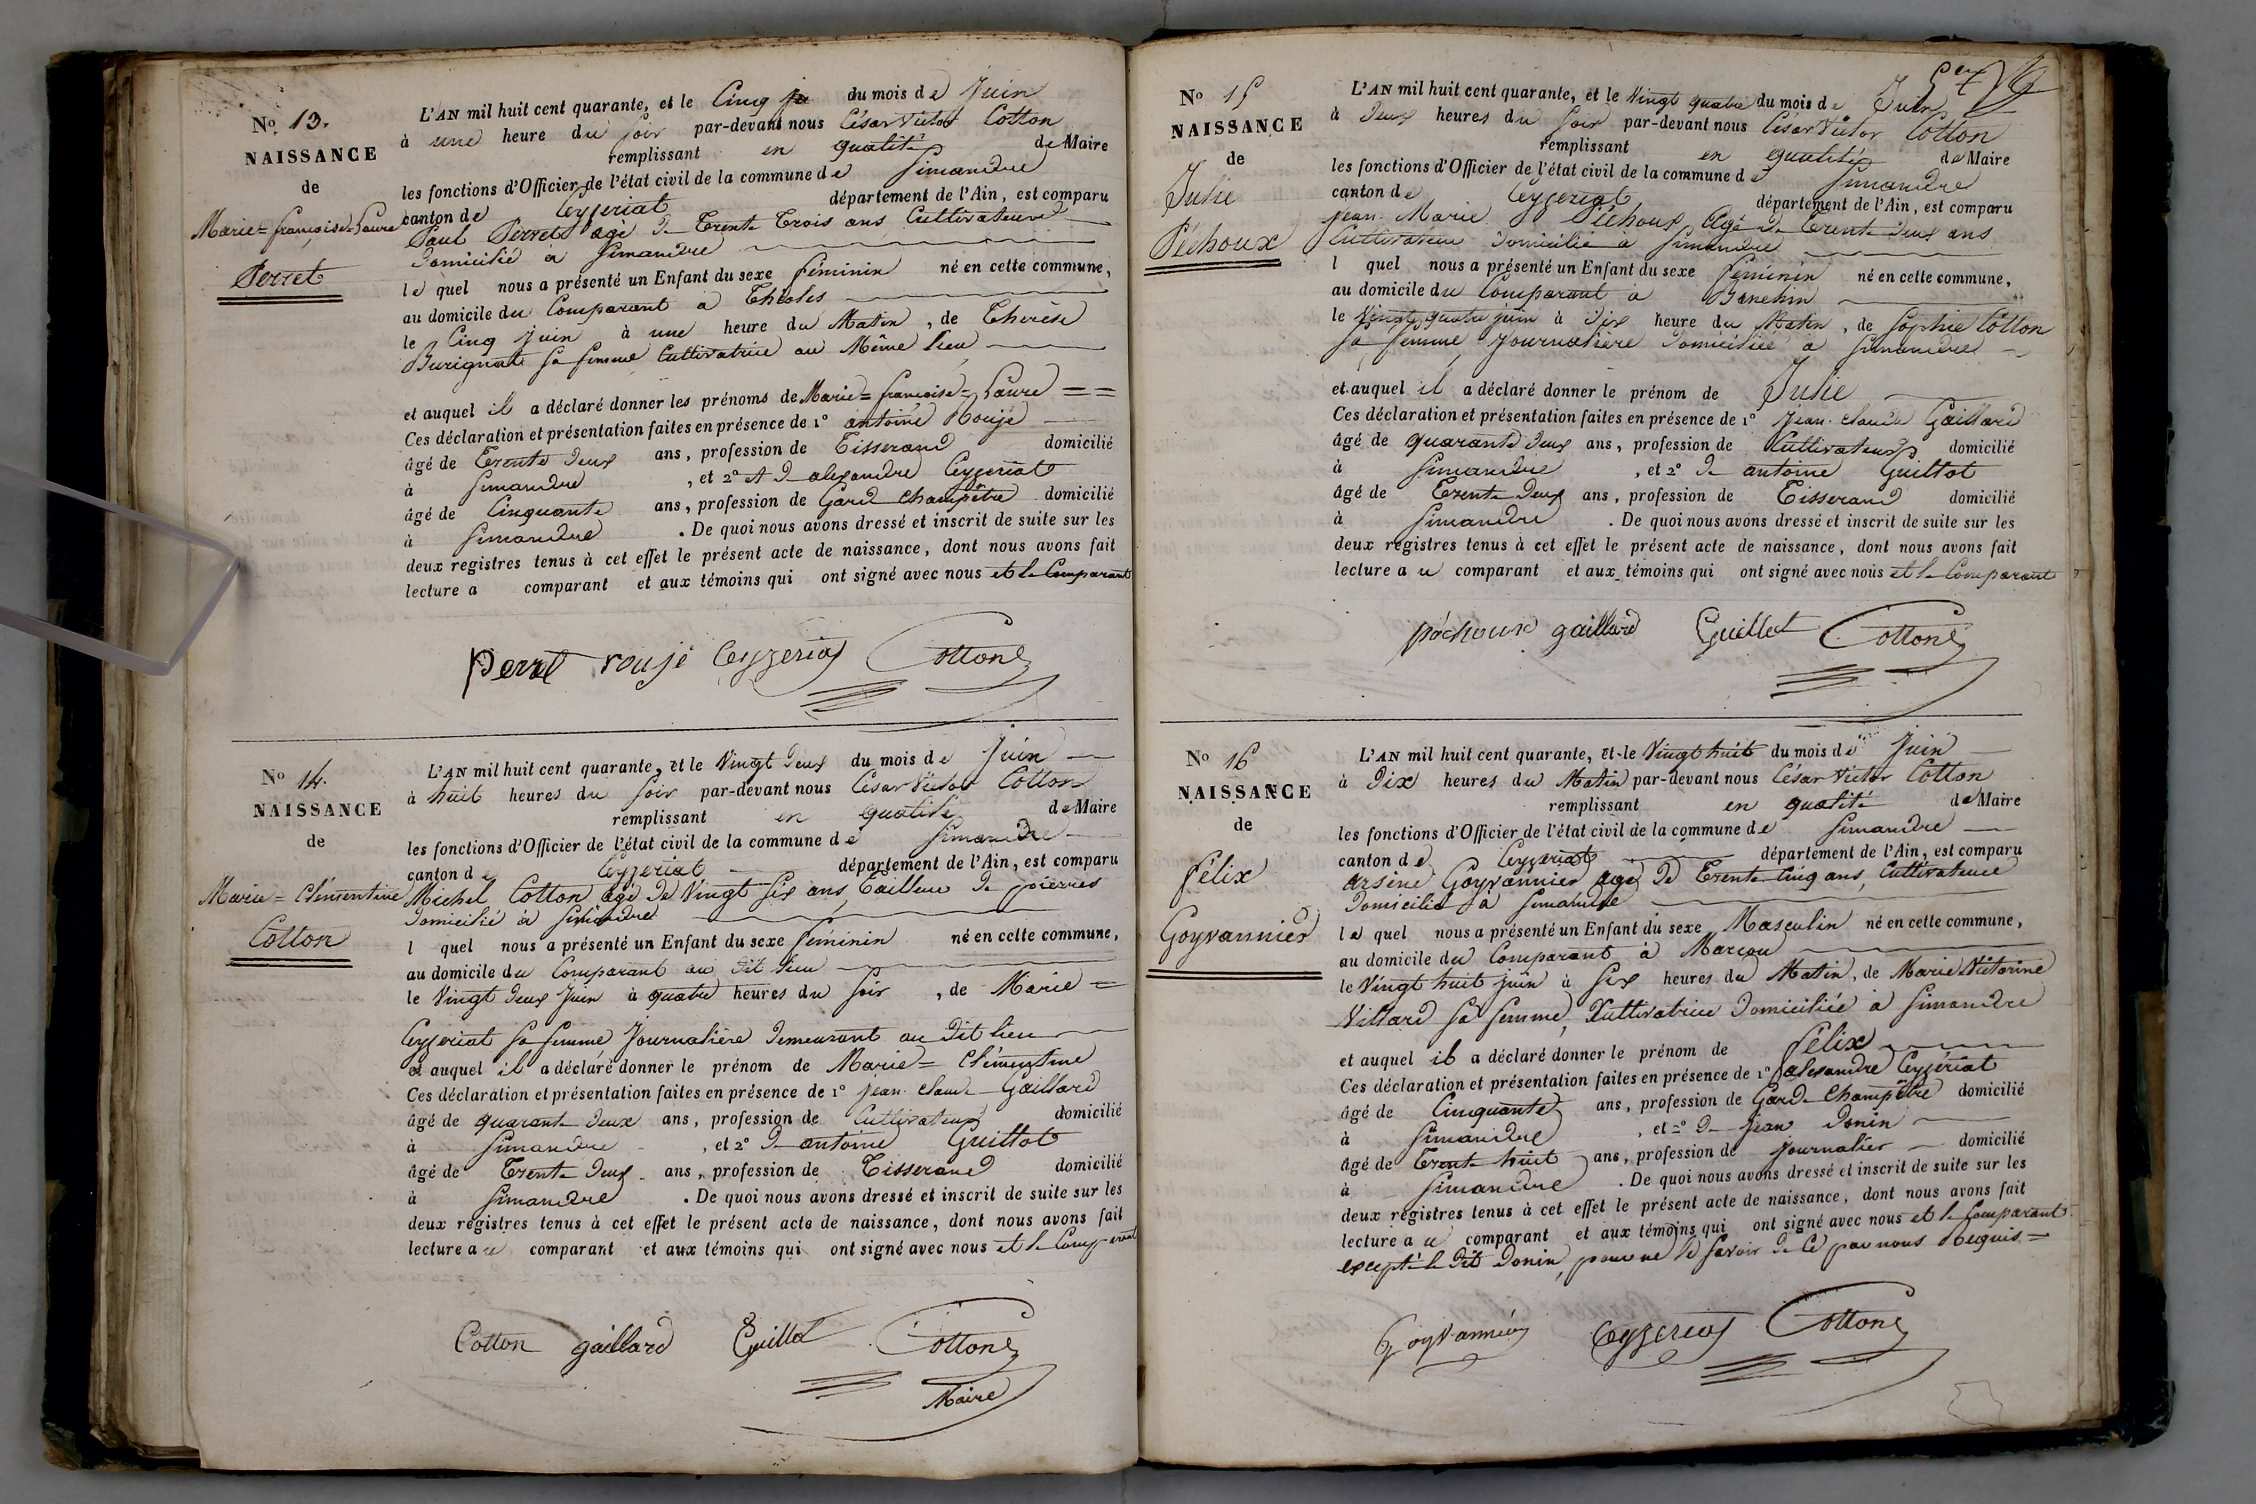 No 13.
NAISSANCE
de
Marie=françoise=Laure
Perret
L'AN mil huit cent quarante, et le Cinq du mois de Juin
à une heure du soir par-devant nous César Victor Cotton
remplissant en qualité de Maire
les fonctions d'Officier de l'état civil de la commune de Simandre
canton de Ceyzeriat département de l'Ain, est comparu
Paul Perret agé de Trente Trois ans, Cultivateur
Domicilié à Simandre
le quel nous a présenté un Enfant du sexe féminin né en cette commune,
au domicile du Comparant a Thioles
le Cinq Juin à une heure du Matin, de Therèse
Burignat sa femme Cultivatrice au Même lieu
et auquel il a déclaré donner les prénoms de Marie=françoise=Laure ==
Ces déclaration et présentation faites en présence de 1° antoine Rouje
âgé de Trente Deux ans, profession de Tisserand domicilié
à Simandre, et 2° de alexandre Ceyzeriat
âgé de Cinquante ans, profession de Gard Champêtre domicilié
à Simandre. De quoi nous avons dressé et inscrit de suite sur les
deux registres tenus à cet effet le présent acte de naissance, dont nous avons fait
lecture a comparant et aux témoins qui ont signé avec nous et le Comparant
perret rouje Ceyzeriat Cotton
No 14.
NAISSANCE
de
Marie=Clémentine
Cotton
L'AN mil huit cent quarante, et le Vingt Deux du mois de Juin
à huit heures du soir par-devant nous César Victor Cotton
remplissant en qualité de Maire
les fonctions d'Officier de l'état civil de la commune de Simandre
canton de Ceyzeriat département de l'Ain, est comparu
Michel Cotton agé de Vingt Six ans, Tailleur de pierres
Domicilié à Simandre
l quel nous a présenté un Enfant du sexe féminin né en cette commune,
au domicile du Comparant au Dit lieu
le Vingt Deux Juin à quatre heures du soir, de Marie=
Ceyzeriat sa femme Journalière Demeurant au Dit lieu
et auquel il a déclaré donner le prénom de Marie=Clémentine
Ces déclaration et présentation faites en présence de 1° jean claude Gaillard
âgé de quarante Deux ans, profession de Cultivateur domicilié
à Simandre, et 2° de antoine Guillot
âgé de Trente Deux ans, profession de Tisserand domicilié
à Simandre. De quoi nous avons dressé et inscrit de suite sur les
deux registres tenus à cet effet le présent acte de naissance, dont nous avons fait
lecture au comparant et aux témoins qui ont signé avec nous et le Comparant
Cotton gaillard Guillot Cotton
Maire
No 15
NAISSANCE
de
Julie
Péchoux
L'AN mil huit cent quarante, et le Vingt quatre du mois de Juin
à Deux heures du soir par-devant nous César Victor Cotton
remplissant en qualité de Maire
les fonctions d'Officier de l'état civil de la commune de Simandre
canton de Ceyzeriat département de l'Ain, est comparu
jean Marie Péchoux Agé de Trente Deux ans
Cultivateur Domicilié a Simandre
l quel nous a présenté un Enfant du sexe féminin né en cette commune,
au domicile du Comparant a Banchin
le Vingt quatre juin à Dix heure du Matin, de Sophie Cotton
sa femme Journalière Domiciliée a Simandre
et auquel il a déclaré donner le prénom de Julie
Ces déclaration et présentation faites en présence de 1° jean claude Gaillard
âgé de quarante Deux ans, profession de Cultivateur domicilié
à Simandre, et 2° de antoine Guillot
âgé de Trente Deux ans, profession de Tisserand domicilié
à Simandre. De quoi nous avons dressé et inscrit de suite sur les
deux registres tenus à cet effet le présent acte de naissance, dont nous avons fait
lecture au comparant et aux témoins qui ont signé avec nous et le Comparant
péchoux gaillard Guillot Cotton
No 16
NAISSANCE
de
félix
Goyvannier
L'AN mil huit cent quarante, et le Vingt huit du mois de Juin
à Dix heures du Matin par-devant nous César Victor Cotton
remplissant en qualité de Maire
les fonctions d'Officier de l'état civil de la commune de Simandre
canton de Ceyzeriat département de l'Ain, est comparu
arsène Goyvannier agé de Trente Cinq ans, Cultivateur
Domicilié à Simandre
le quel nous a présenté un Enfant du sexe Masculin né en cette commune,
au domicile du Comparant à Marcou
le Vingt huit juin à Six heures du Matin, de Marie Victorine
Villard sa femme, Cultivatrice Domiciliée a Simandre
et auquel il a déclaré donner le prénom de félix
Ces déclaration et présentation faites en présence de 1° alexandre Ceyzériat
âgé de Cinquante ans, profession de Gard Champêtre domicilié
à Simandre, et 2° de Jean Donin
âgé de Trente huit ans, profession de journalier domicilié
à Simandre. De quoi nous avons dressé et inscrit de suite sur les
deux registres tenus à cet effet le présent acte de naissance, dont nous avons fait
lecture au comparant et aux témoins qui ont signé avec nous et le Comparant
excepté le Dit Donin, pour ne le savoir de Ce par nous Requis=
Goyvannier Ceyzeriat Cotton